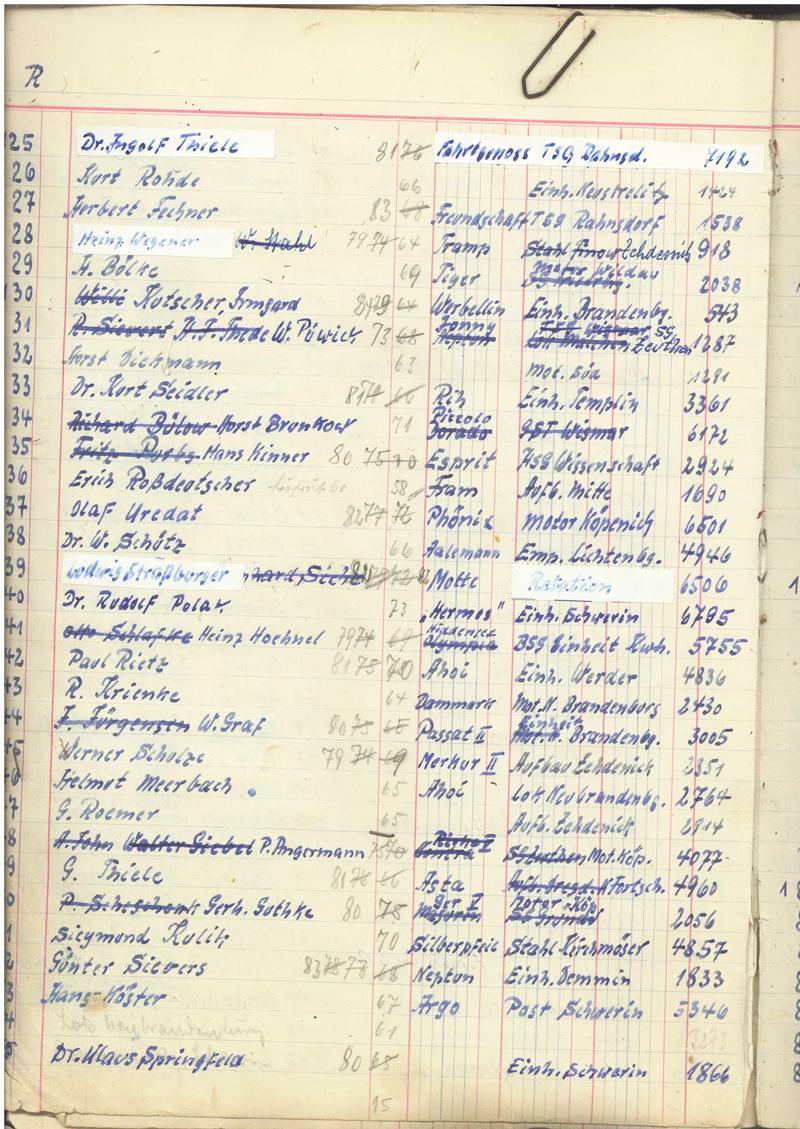 R
25 Dr. Ingolf Thiele 81 76 Fahrtgenoss TSG Rahnsd. 7192
26 Kurt Rohde 66 Einh. Neustrelitz 1424
27 Herbert Fechner 83 68 Freundschaft TSG Rahnsdorf 1538
28 Heinz Wegener W. Stahl 79 74 64 Tramp Stahl Finow Zehdenick 918
29 H. Bölke 69 Tiger Motor Wildau 2038
30 Willi Kutscher, Irmgard 64 Werbellin Einh. Brandenbg. 543
31 R. Sievert H. J. Thede W. Püwick 73 68 Conny Neptun Zeuthen 1287
32 Horst Dickmann 63 Mot. Süd 1291
33 Dr. Kurt Seidler 66 Rih Einh. Templin 3361
34 Richard Bülow Horst Brunkow 71 Piccolo Dorado GST Wismar 6172
35 Hans Kinner 80 75 70 Esprit HSG Wissenschaft 2924
36 Erich Roßdeutscher 58 Fram Aufb. Mitte 1690
37 Olaf Uredat 82 77 72 Phönix Motor Köpenick 6501
38 Dr. W. Schütz 66 Aalemann Emp. Lichtenbg. 4946
39 Ludwig Straßburger Motte Rotation 6506
40 Dr. Rudolf Polak 73 „Hermes" Einh. Schwerin 6795
41 Otto Schlafke Heinz Hoehnel 79 74 69 Hiddensee Olympia BSG Einheit Kwh. 5755
42 Paul Rietz 81 75 70 Ahoi Einh. Werder 4836
43 R. Krienke 64 Danmark Mot. N. Brandenburg 2430
44 F. Jürgensen W. Graf 80 75 65 Passat II Einheit Mot. N. Brandenbg. 3005
45 Werner Schulze 79 74 69 Merkur II Aufbau Zehdenick 2351
6 Helmut Meerbach 65 Ahoi Lok Neubrandenbg. 2764
7 G. Roemer 65 Aufb. Zehdenick 2914
8 A. John Walter Siebel P. Angermann 75 70 Mot. Köp. 4077
9 G. Thiele 81 76 66 Asta Fortsch. 4960
0 Gerh. Guthke 80 75 Ger V Motor Köp 2056
1 Siegmund Kulik 70 Silberpfeil Stahl Kirchmöser 4857
2 Günter Sievers 83 78 73 68 Neptun Einh. Demmin 1833
3 Hans Köster 67 Argo Post Schwerin 5346
4 Lok 61 3273
5 Dr. Klaus Springfeld 80 65 Einh. Schwerin 1866
15